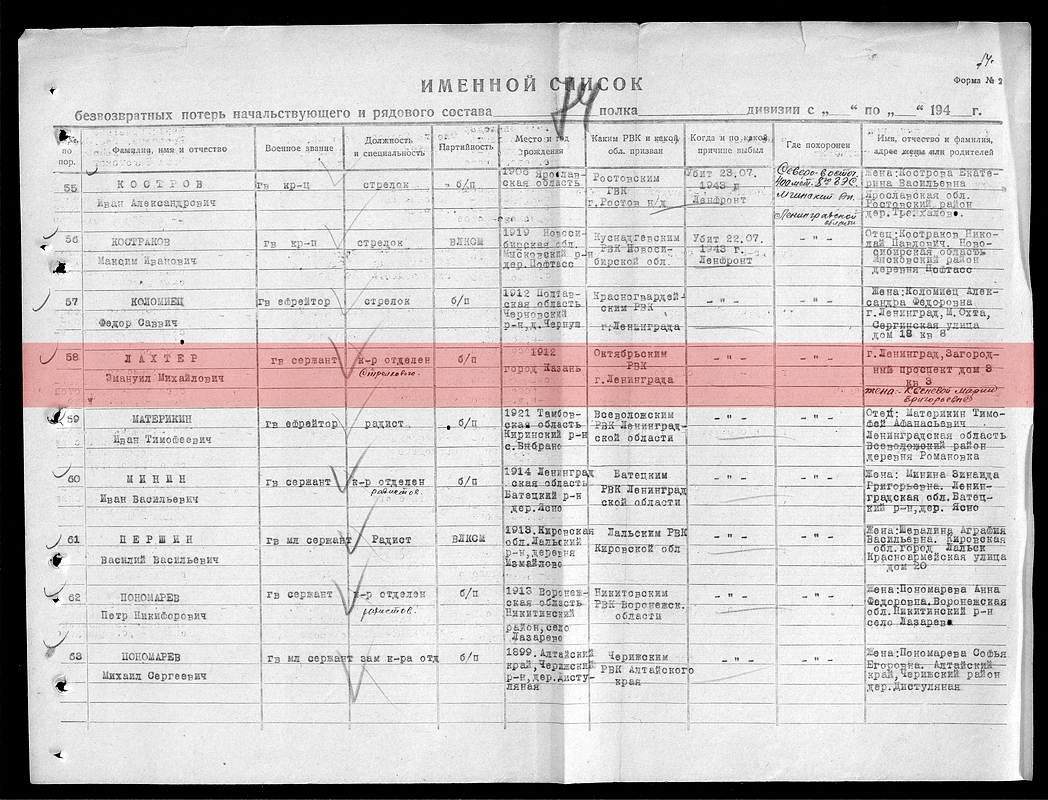 74.
Форма № 2
ИМЕННОЙ СПИСОК
74
безвозвратных потерь начальствующего и рядового состава полка дивизии с „ “ по „ “ 194 г.
№№ по пор. Фамилия, имя и отчество Военное звание Должность и специальность Партийность Место и год рождения Каким РВК и какой обл. призван Когда и по какой причине выбыл Где похоронен Имя, отчество и фамилия, адрес жены или родителей
55 КОСТРОВ
Иван Александрович
гв кр-ц
стрелок
б/п
1908 Ярослав-
ская область
Ростовским
РВК
г.Ростов н/д
Убит 23.07.
1943 г
Ленфронт
8й ГЭС
Мгинский
Ленинградской
области
Жена:Кострова Екате-
рина Васильевна
Ярославская обл.
Ростовский район
дер.Трехалово.
56 КОСТРАКОВ
Максим Иванович
гв кр-ц
стрелок
ВЛКСМ
1919 Новоси-
бирская обл.
Мысковский р-н
дер.Пофтасс
РВК Новоси-
бирской обл.
Убит 22.07.
1943 г.
Ленфронт
- " -
Отец:Костраков Нико-
лай Павлович. Ново-
сибирская область
район
деревня Пофтасс
57 КОЛОМИЕЦ
Федор Саввич
гв ефрейтор
стрелок
б/п
1912 Полтав-
ская область
Черновский
р-н,д.Чернуш
Красногвардей-
ским РВК
г.Ленинграда
- " -
- " -
Жена:Коломиец Алек-
сандра Федоровна
г.Ленинград,М.Охта,
Сергинская улица
дом 18 кв 8
58 ЛАХТЕР
Эмануил Михайлович
гв сержант
к-р отделен
стрелкового.
б/п
1912
город Казань
Октябрьским
РВК
г.Ленинграда
- " -
- " -
г.Ленинград,Загород-
ный проспект дом 3
кв 3
жена- Марии
Григорьевне
59 МАТЕРИКИН
Иван Тимофеевич
гв ефрейтор
радист
б/п
1921 Тамбов-
ская область
Киринский р-н
с.Вибрано
Всеволовским
РВК Ленинград-
ской области
- " -
- " -
Отец: Материкин Тимо-
фей Афанасьевич
Ленинградская область
Всеволожский район
деревня Романовка
60 МИНИН
Иван Васильевич
гв сержант
к-р отделен
радистов.
б/п
1914 Ленинград
ская область
Батецкий р-н
дер.Ясно
Батецким
РВК Ленинград
ской области
- " -
- " -
Жена: Минина Зинаида
Григорьевна. Ленин-
градская обл.Батец-
кий р-н,дер. Ясно
61 ПЕРШИН
Василий Васильевич
гв мл сержант
Радист
ВЛКСМ
1913.Кировская
обл.Лальский
р-н,деревня
Измайлово
Лальским РВК
Кировской обл
- " -
- " -
Жена:Шевалина Аграфия
Васильевна. Кировская
обл.город Лальск
Красноармейская улица
дом 20
62 ПОНОМАРЕВ
Петр Никифорович
гв сержант
к-р отделен
радистов.
б/п
1913 Воронеж-
ская область
Никитинский
район,село
Лазарево
Никитовским
РВК Воронежск.
области
- " -
- " -
Жена:Пономарева Анна
Федоровна.Воронежская
обл.Никитинский р-н
село Лазарево
63 ПОНОМАРЕВ
Михаил Сергеевич
гв мл сержант
зам к-ра отд
б/п
1899.Алтайский
край,Черижский
р-н,дер.Дисту-
ляная
Черижским
РВК Алтайского
края
- " -
- " -
Жена:Пономарева Софья
Егоровна. Алтайский
край,Черижский район
дер.Дистуляная